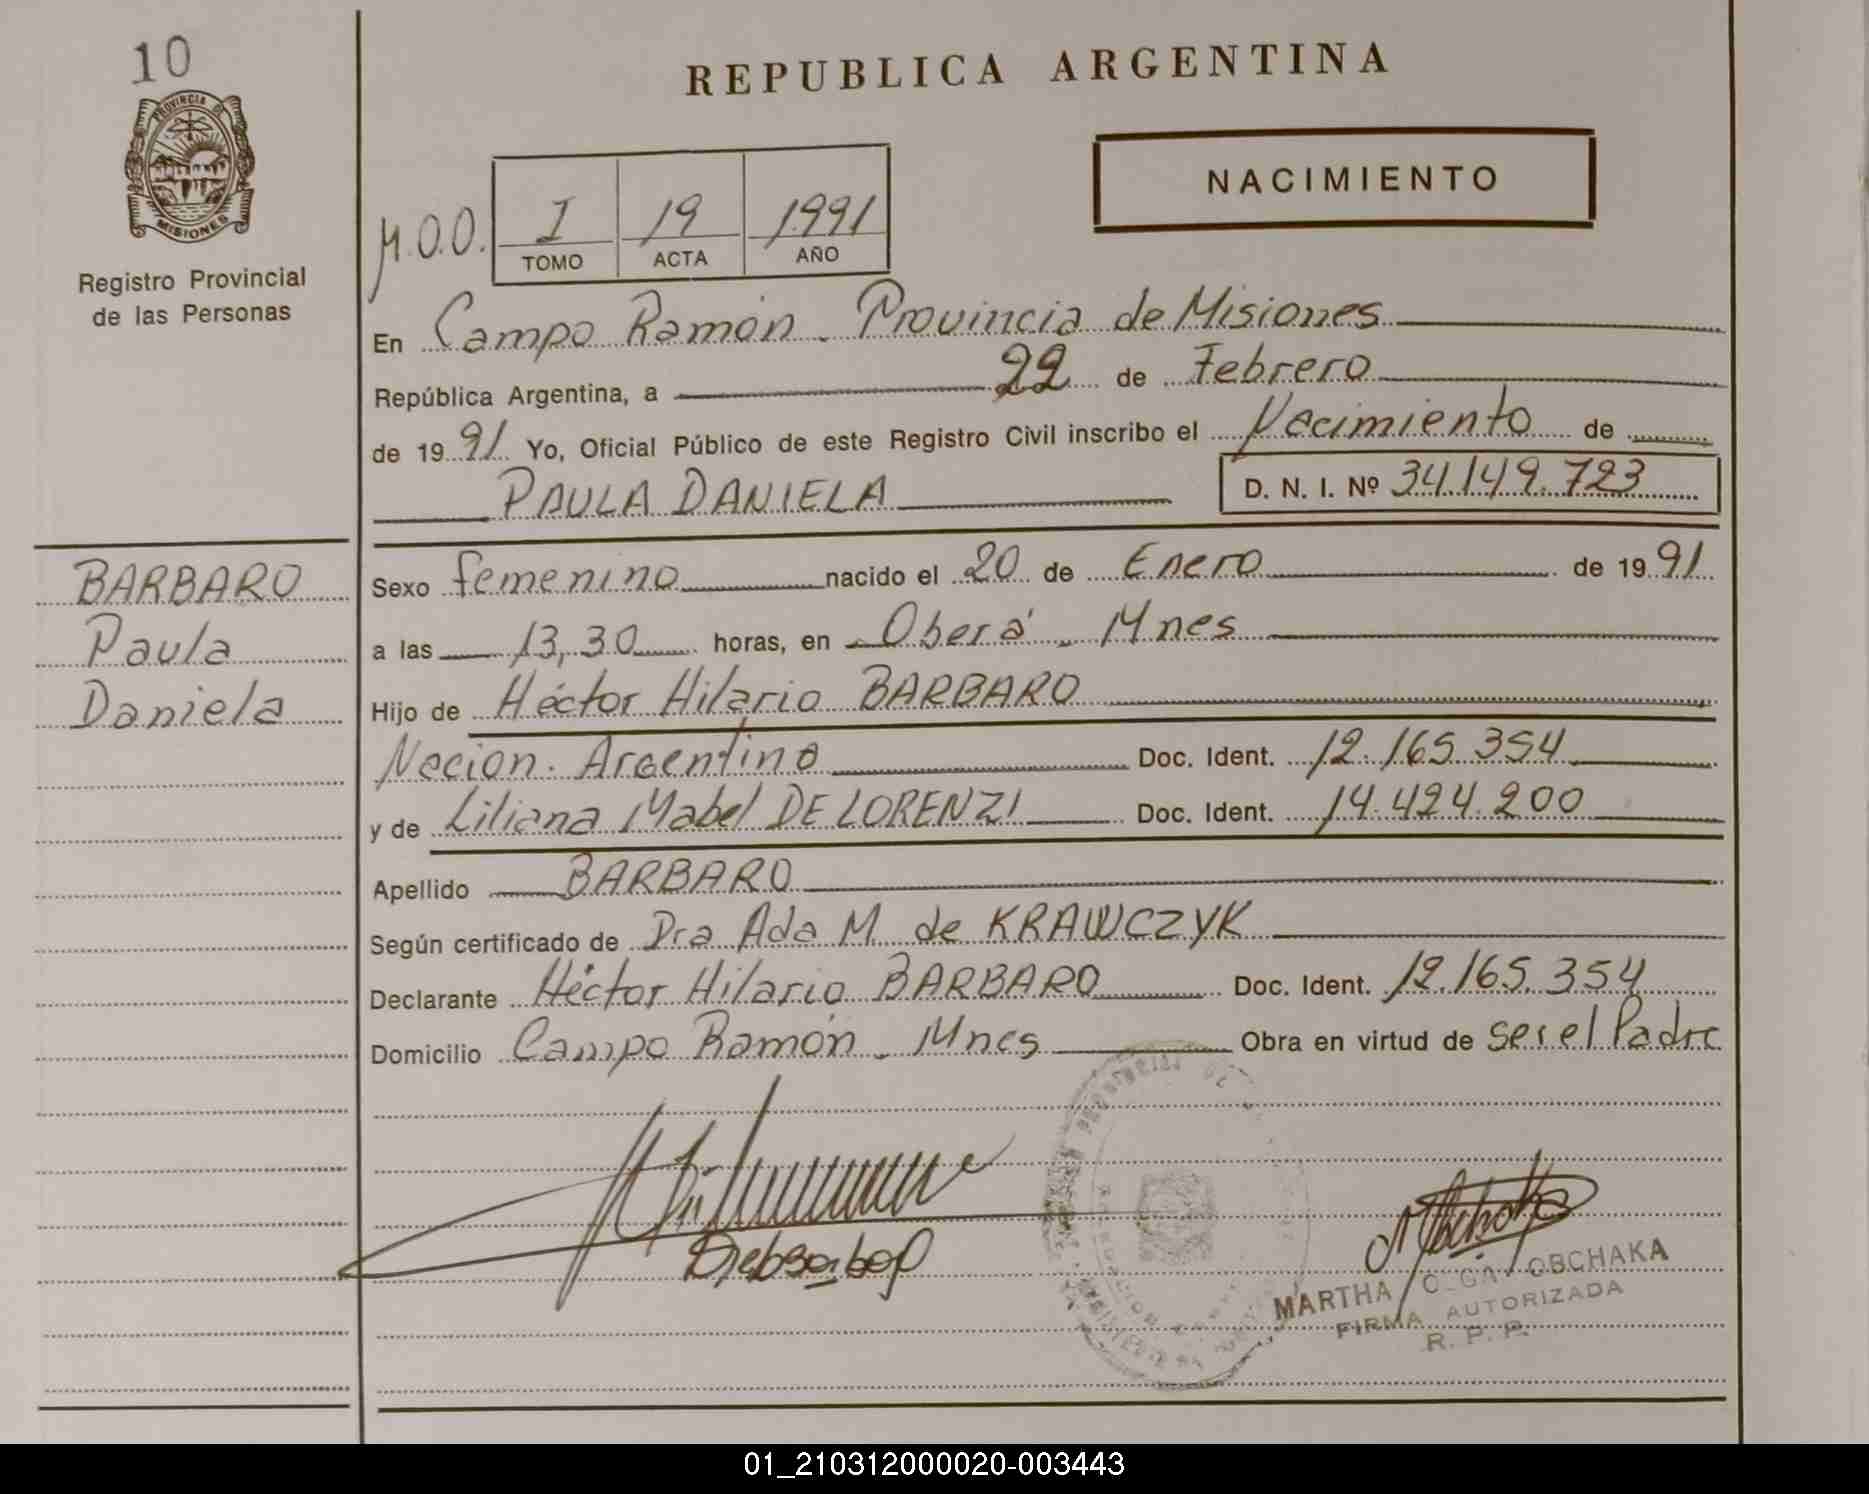 10
PROVINCIA DE
MISIONES
Registro Provincial
de las Personas
REPUBLICA ARGENTINA
NACIMIENTO
M.O.O.
I 19 1991
TOMO ACTA AÑO
En Campo Ramón - Provincia de Misiones
República Argentina, a 22 de Febrero
de 19 91 Yo, Oficial Público de este Registro Civil inscribo el Nacimiento de
PAULA DANIELA D. N. I. Nº 34.149.723
BARBARO
Paula
Daniela
Sexo femenino nacido el 20 de Enero de 19 91
a las 13,30 horas, en Oberá - Mnes
Hijo de Héctor Hilario BARBARO
Nacion. Argentina Doc. Ident. 12.165.354
y de Liliana Mabel DE LORENZI Doc. Ident. 14.424.200
Apellido BARBARO
Según certificado de Dra Ada M. de KRAWCZYK
Declarante Héctor Hilario BARBARO Doc. Ident. 12.165.354
Domicilio Campo Ramón - Mnes Obra en virtud de ser el Padre
MARTHA OLGA OBCHAKA
FIRMA AUTORIZADA
R. P. P.
01_210312000020-003443